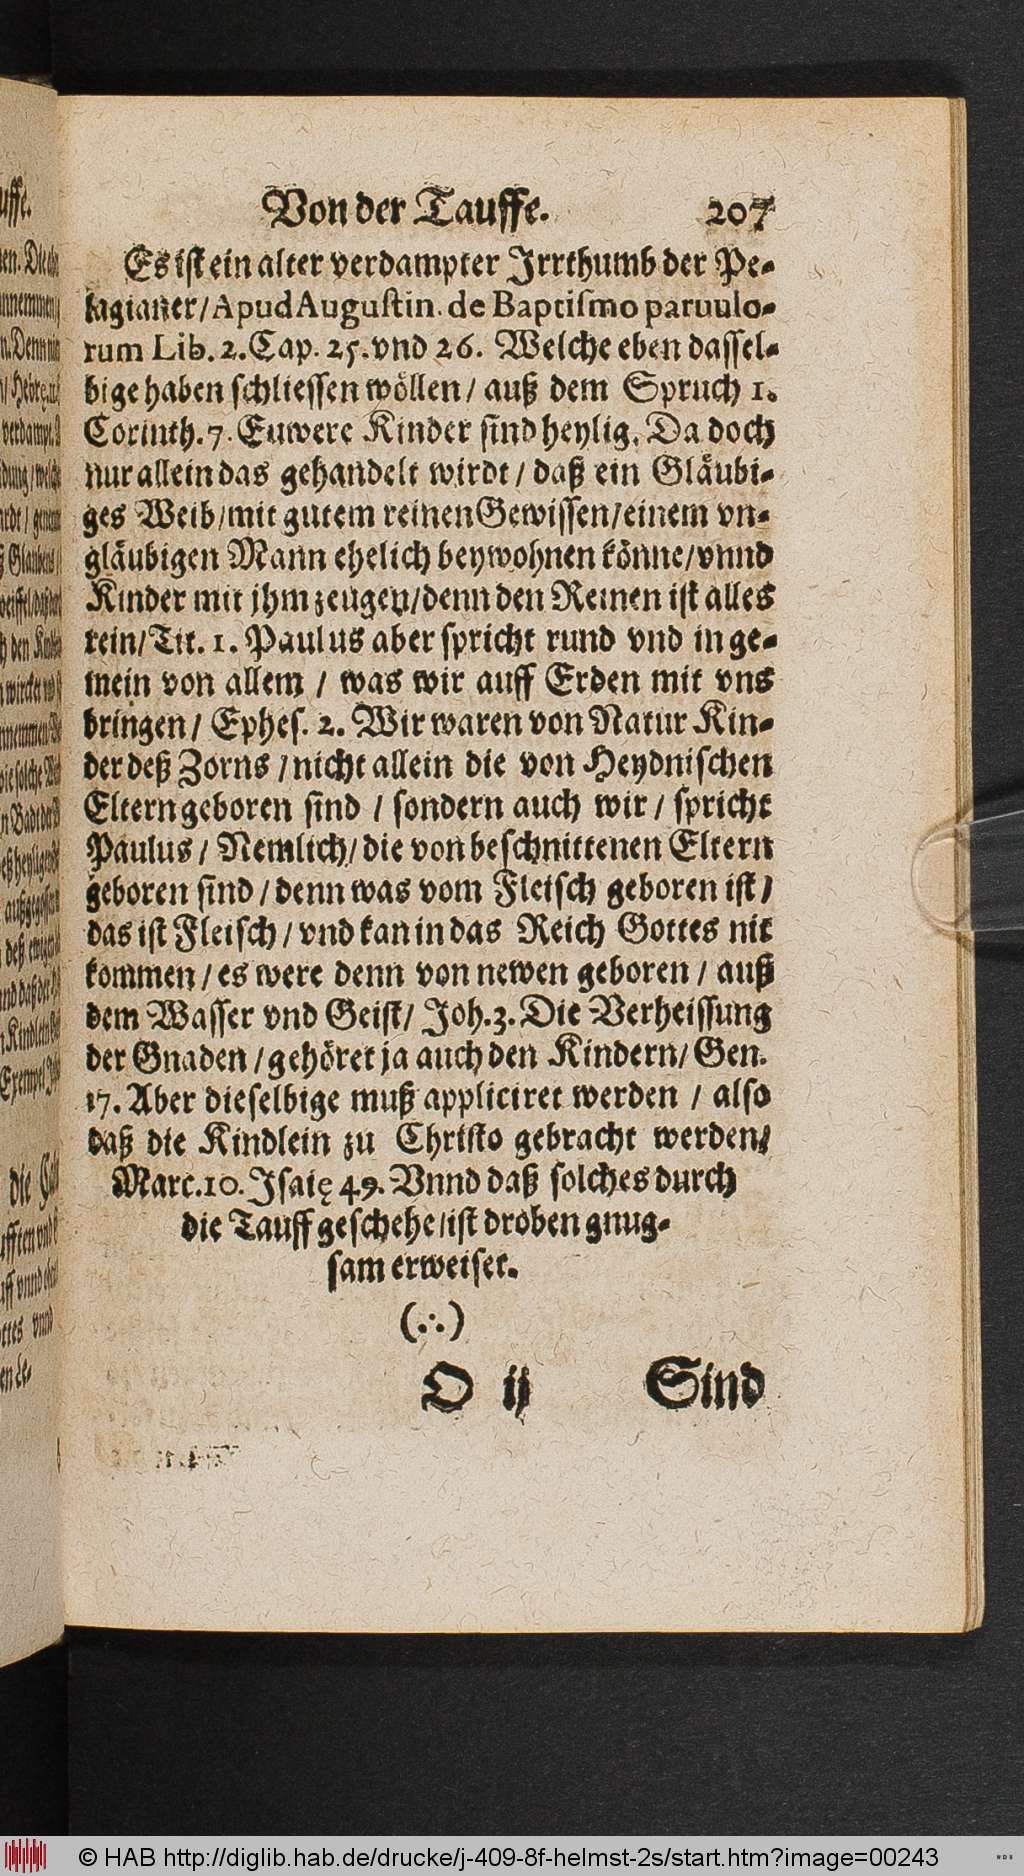 Von der Tauffe. 207
Es ist ein alter verdampter Jrrthumb der Pe-
lagianer / Apud Augustin. de Baptismo paruulo-
rum Lib. 2. Cap. 25. vnd 26. Welche eben dassel-
bige haben schliessen wöllen / auß dem Spruch 1.
Corinth. 7. Euwere Kinder sind heylig. Da doch
nur allein das gehandelt wirdt / daß ein Gläubi-
ges Weib / mit gutem reinen Gewissen / einem vn-
gläubigen Mann ehelich beywohnen könne / vnnd
Kinder mit jhm zeugen / denn den Reinen ist alles
rein / Tit. 1. Paulus aber spricht rund vnd in ge-
mein von allem / was wir auff Erden mit vns
bringen / Ephes. 2. Wir waren von Natur Kin-
der deß Zorns / nicht allein die von Heydnischen
Eltern geboren sind / sondern auch wir / spricht
Paulus / Nemlich / die von beschnittenen Eltern
geboren sind / denn was vom Fleisch geboren ist /
das ist Fleisch / vnd kan in das Reich Gottes nit
kommen / es were denn von newen geboren / auß
dem Wasser vnd Geist / Joh. 3. Die Verheissung
der Gnaden / gehöret ja auch den Kindern / Gen.
17. Aber dieselbige muß appliciret werden / also
daß die Kindlein zu Christo gebracht werden /
Marc. 10. Jsaię 49. Vnnd daß solches durch
die Tauff geschehe / ist droben gnug-
sam erweiset.
(∴)
O ij Sind
© HAB http://diglib.hab.de/drucke/j-409-8f-helmst-2s/start.htm?image=00243